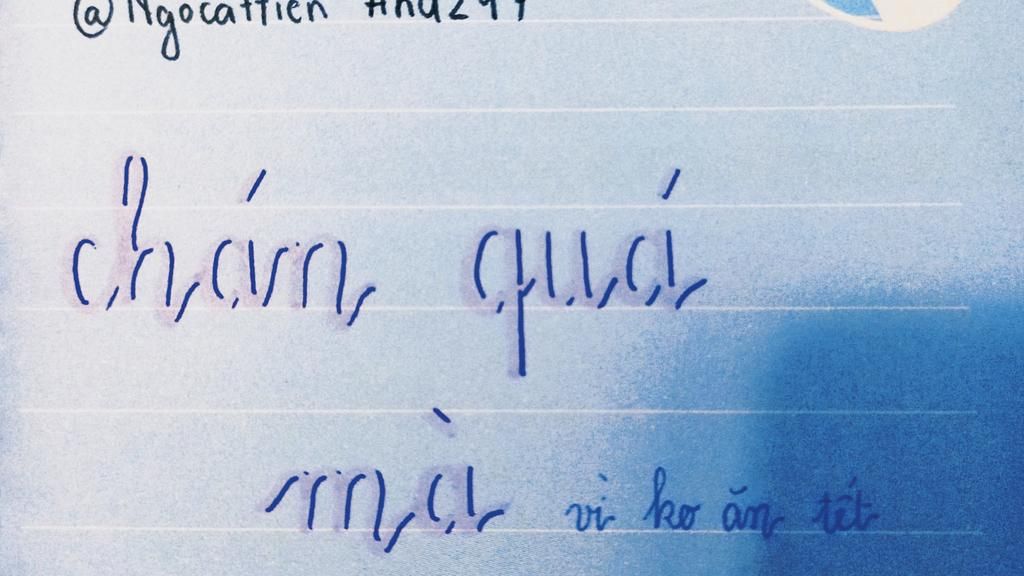 @Ngocattien
chán quá
mà vì ko ăn tết